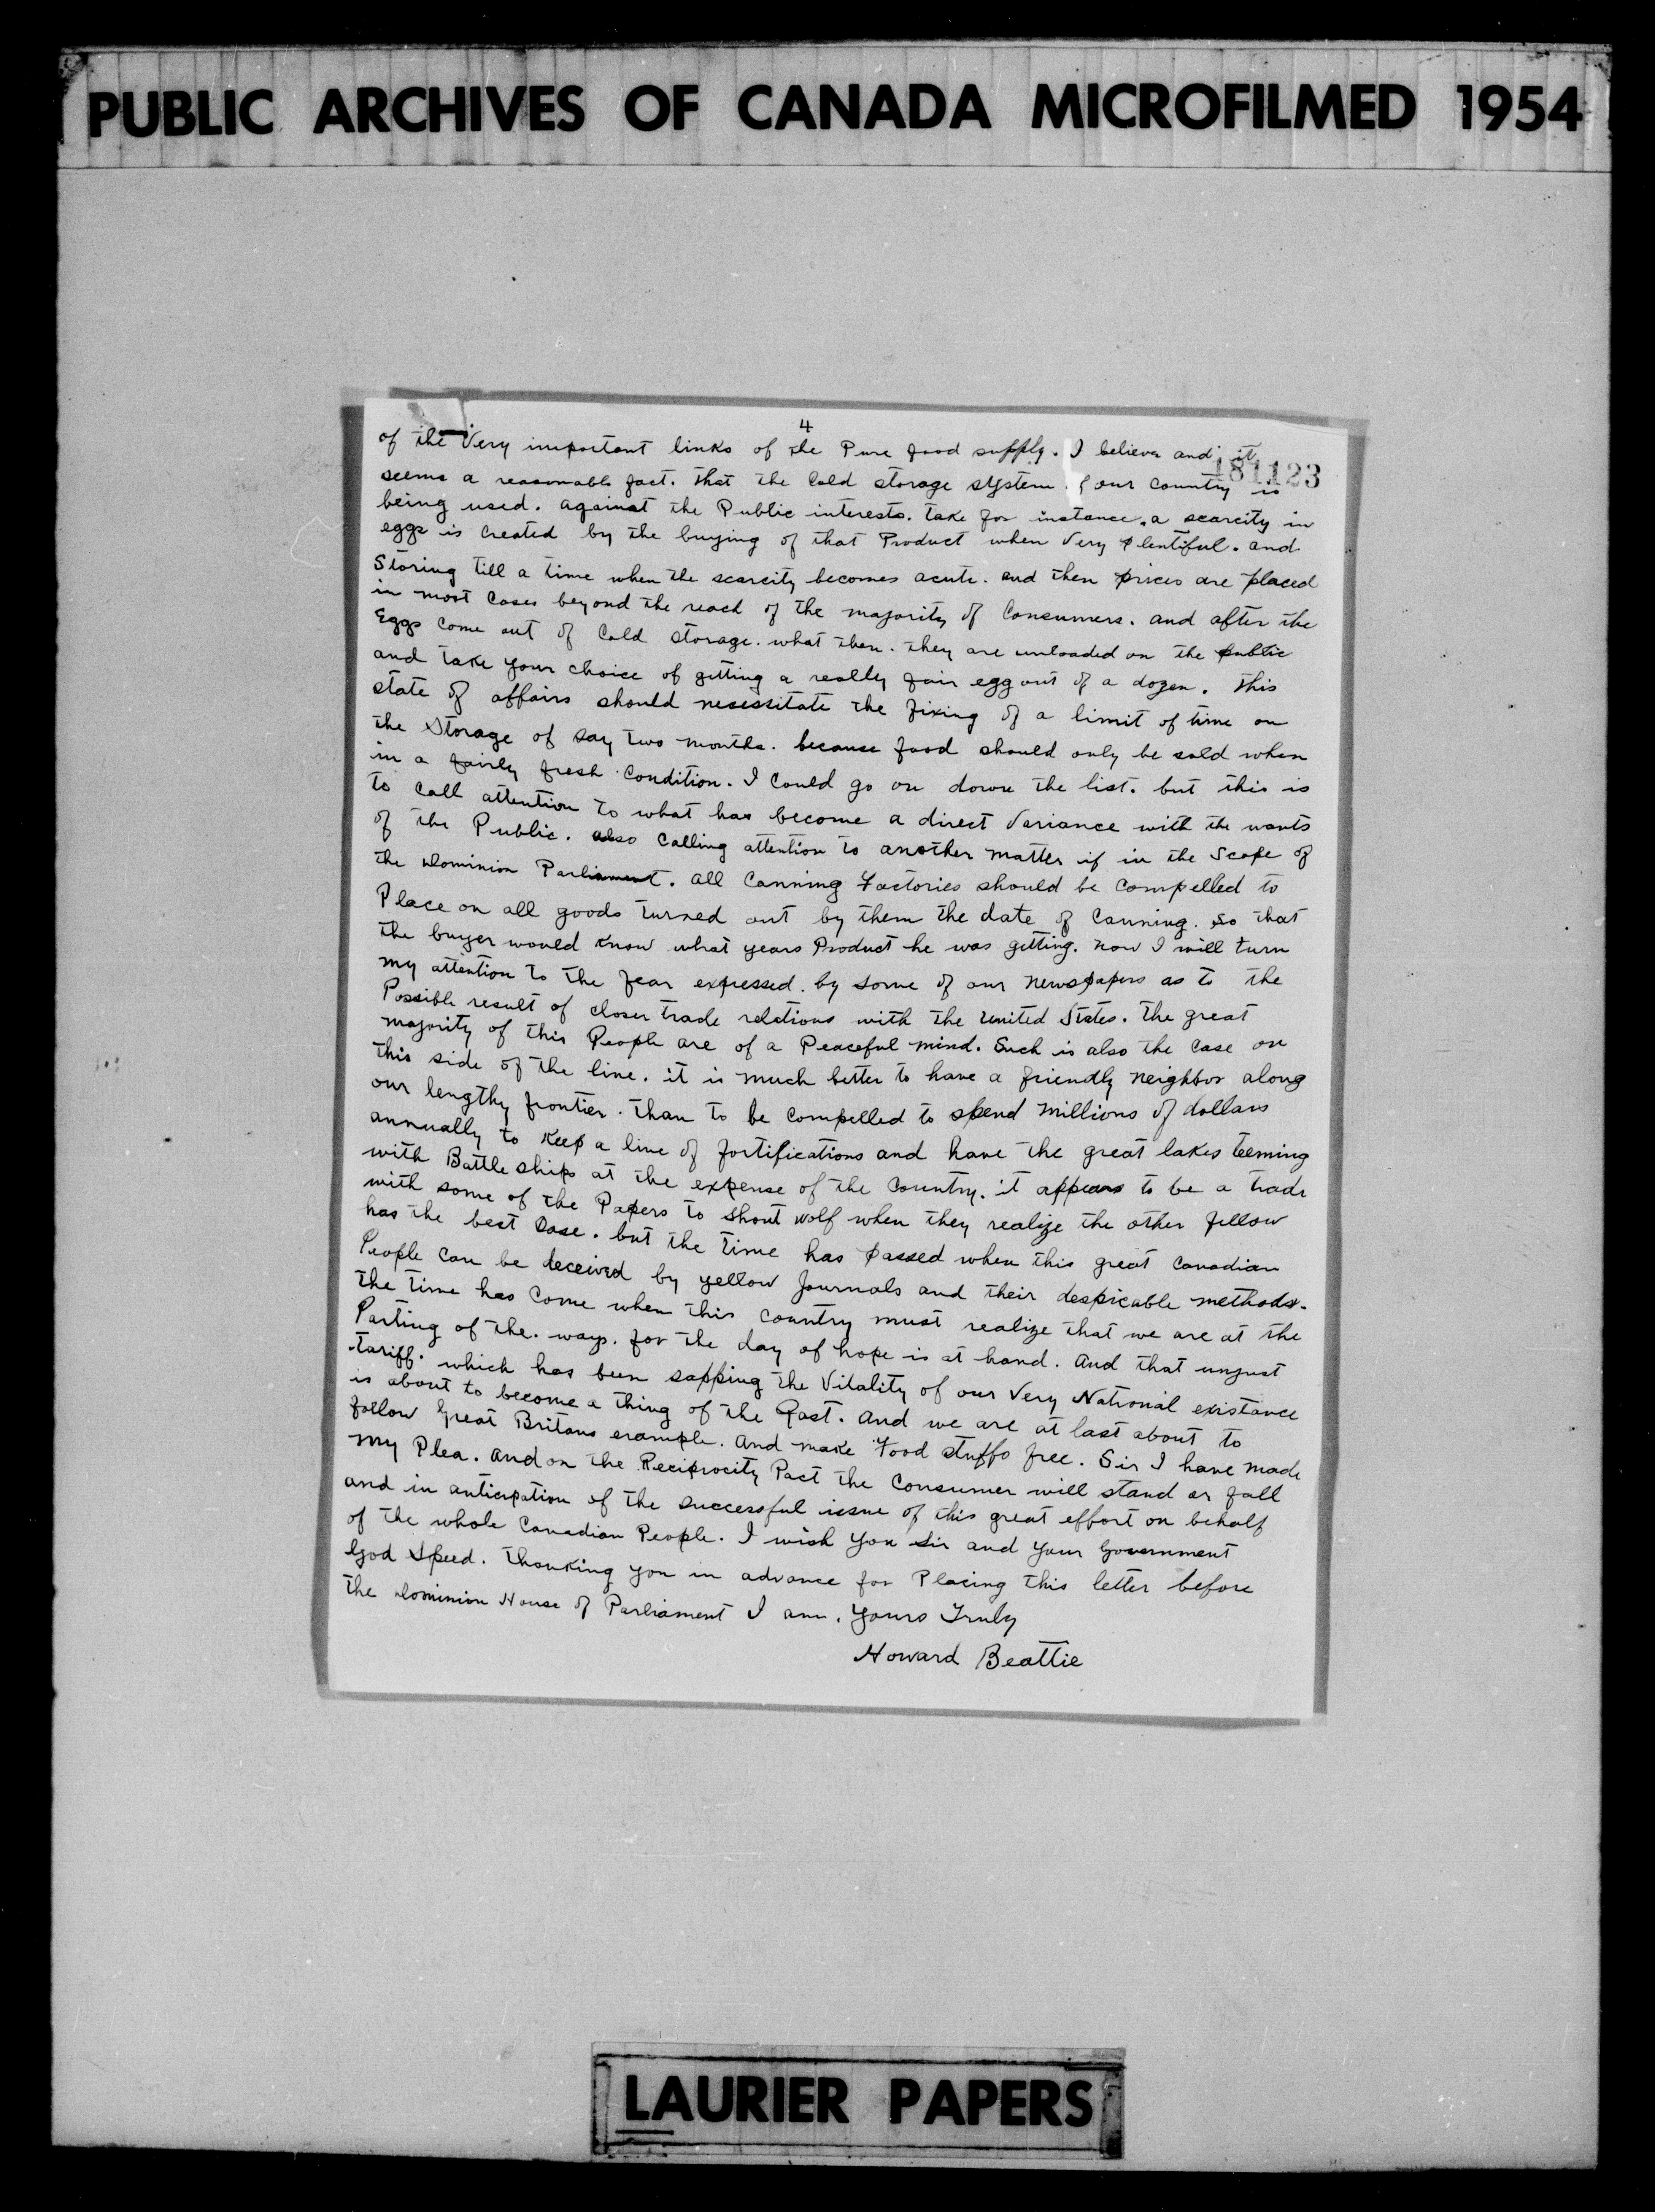 PUBLIC ARCHIVES OF CANADA MICROFILMED 1954
4
181123
of the Very important links of the Pure food supply. I believe and it
seems a reasonable fact. that the Cold storage system of our Country is
being used. against the Public interests. take for instance. a scarcity in
eggs is Created by the buying of that Product when Very plentiful. and
Storing till a time when the scarcity becomes acute. and then prices are placed
in most Cases beyond the reach of the majority of Consumers. and after the
Eggs come out of Cold storage. what then. they are unloaded on the public
and take your choice of getting a really fair egg out of a dozen. this
state of affairs should nesessitate the fixing of a limit of time on
the Storage of say two months. because food should only be sold when
in a fairly fresh Condition. I Could go on down the list. but this is
to Call attention to what has become a direct Variance with the wants
of the Public. also Calling attention to another matter if in the Scope of
the Dominion Parliament. all Canning Factories should be Compelled to
Place on all goods turned out by them the date of Canning. so that
the buyer would know what years Product he was getting. now I will turn
my attention to the fear expressed. by some of our newspapers as to the
Possible result of closer trade relations with the United States. the great
majority of this People are of a Peaceful mind. Such is also the Case on
this side of the line. it is much better to have a friendly neighbor along
our lengthy frontier. than to be Compelled to spend Millions of dollars
annually to Keep a line of fortifications and have the great lakes teeming
with Battle ships at the expense of the Country. it appears to be a trade
with some of the Papers to shout wolf when they realize the other fellow
has the best Case. but the time has passed when this great Canadian
People Can be deceived by yellow Journals and their despicable methods.
the time has Come when this Country must realize that we are at the
Parting of the. ways. for the day of hope is at hand. And that unjust
tariff. which has been sapping the Vitality of our Very National existance
is about to become a thing of the Past. And we are at last about to
follow Great Britans example. And make Food stuffs free. Sir I have made
my Plea. and on the Reciprocity Pact the Consumer will stand or fall
and in anticipation of the successful issue of this great effort on behalf
of the whole Canadian People. I wish you Sir and your Government
God Speed. thanking you in advance for Placing this letter before
the Dominion House of Parliament I am. Yours Truly
Howard Beattie
LAURIER PAPERS